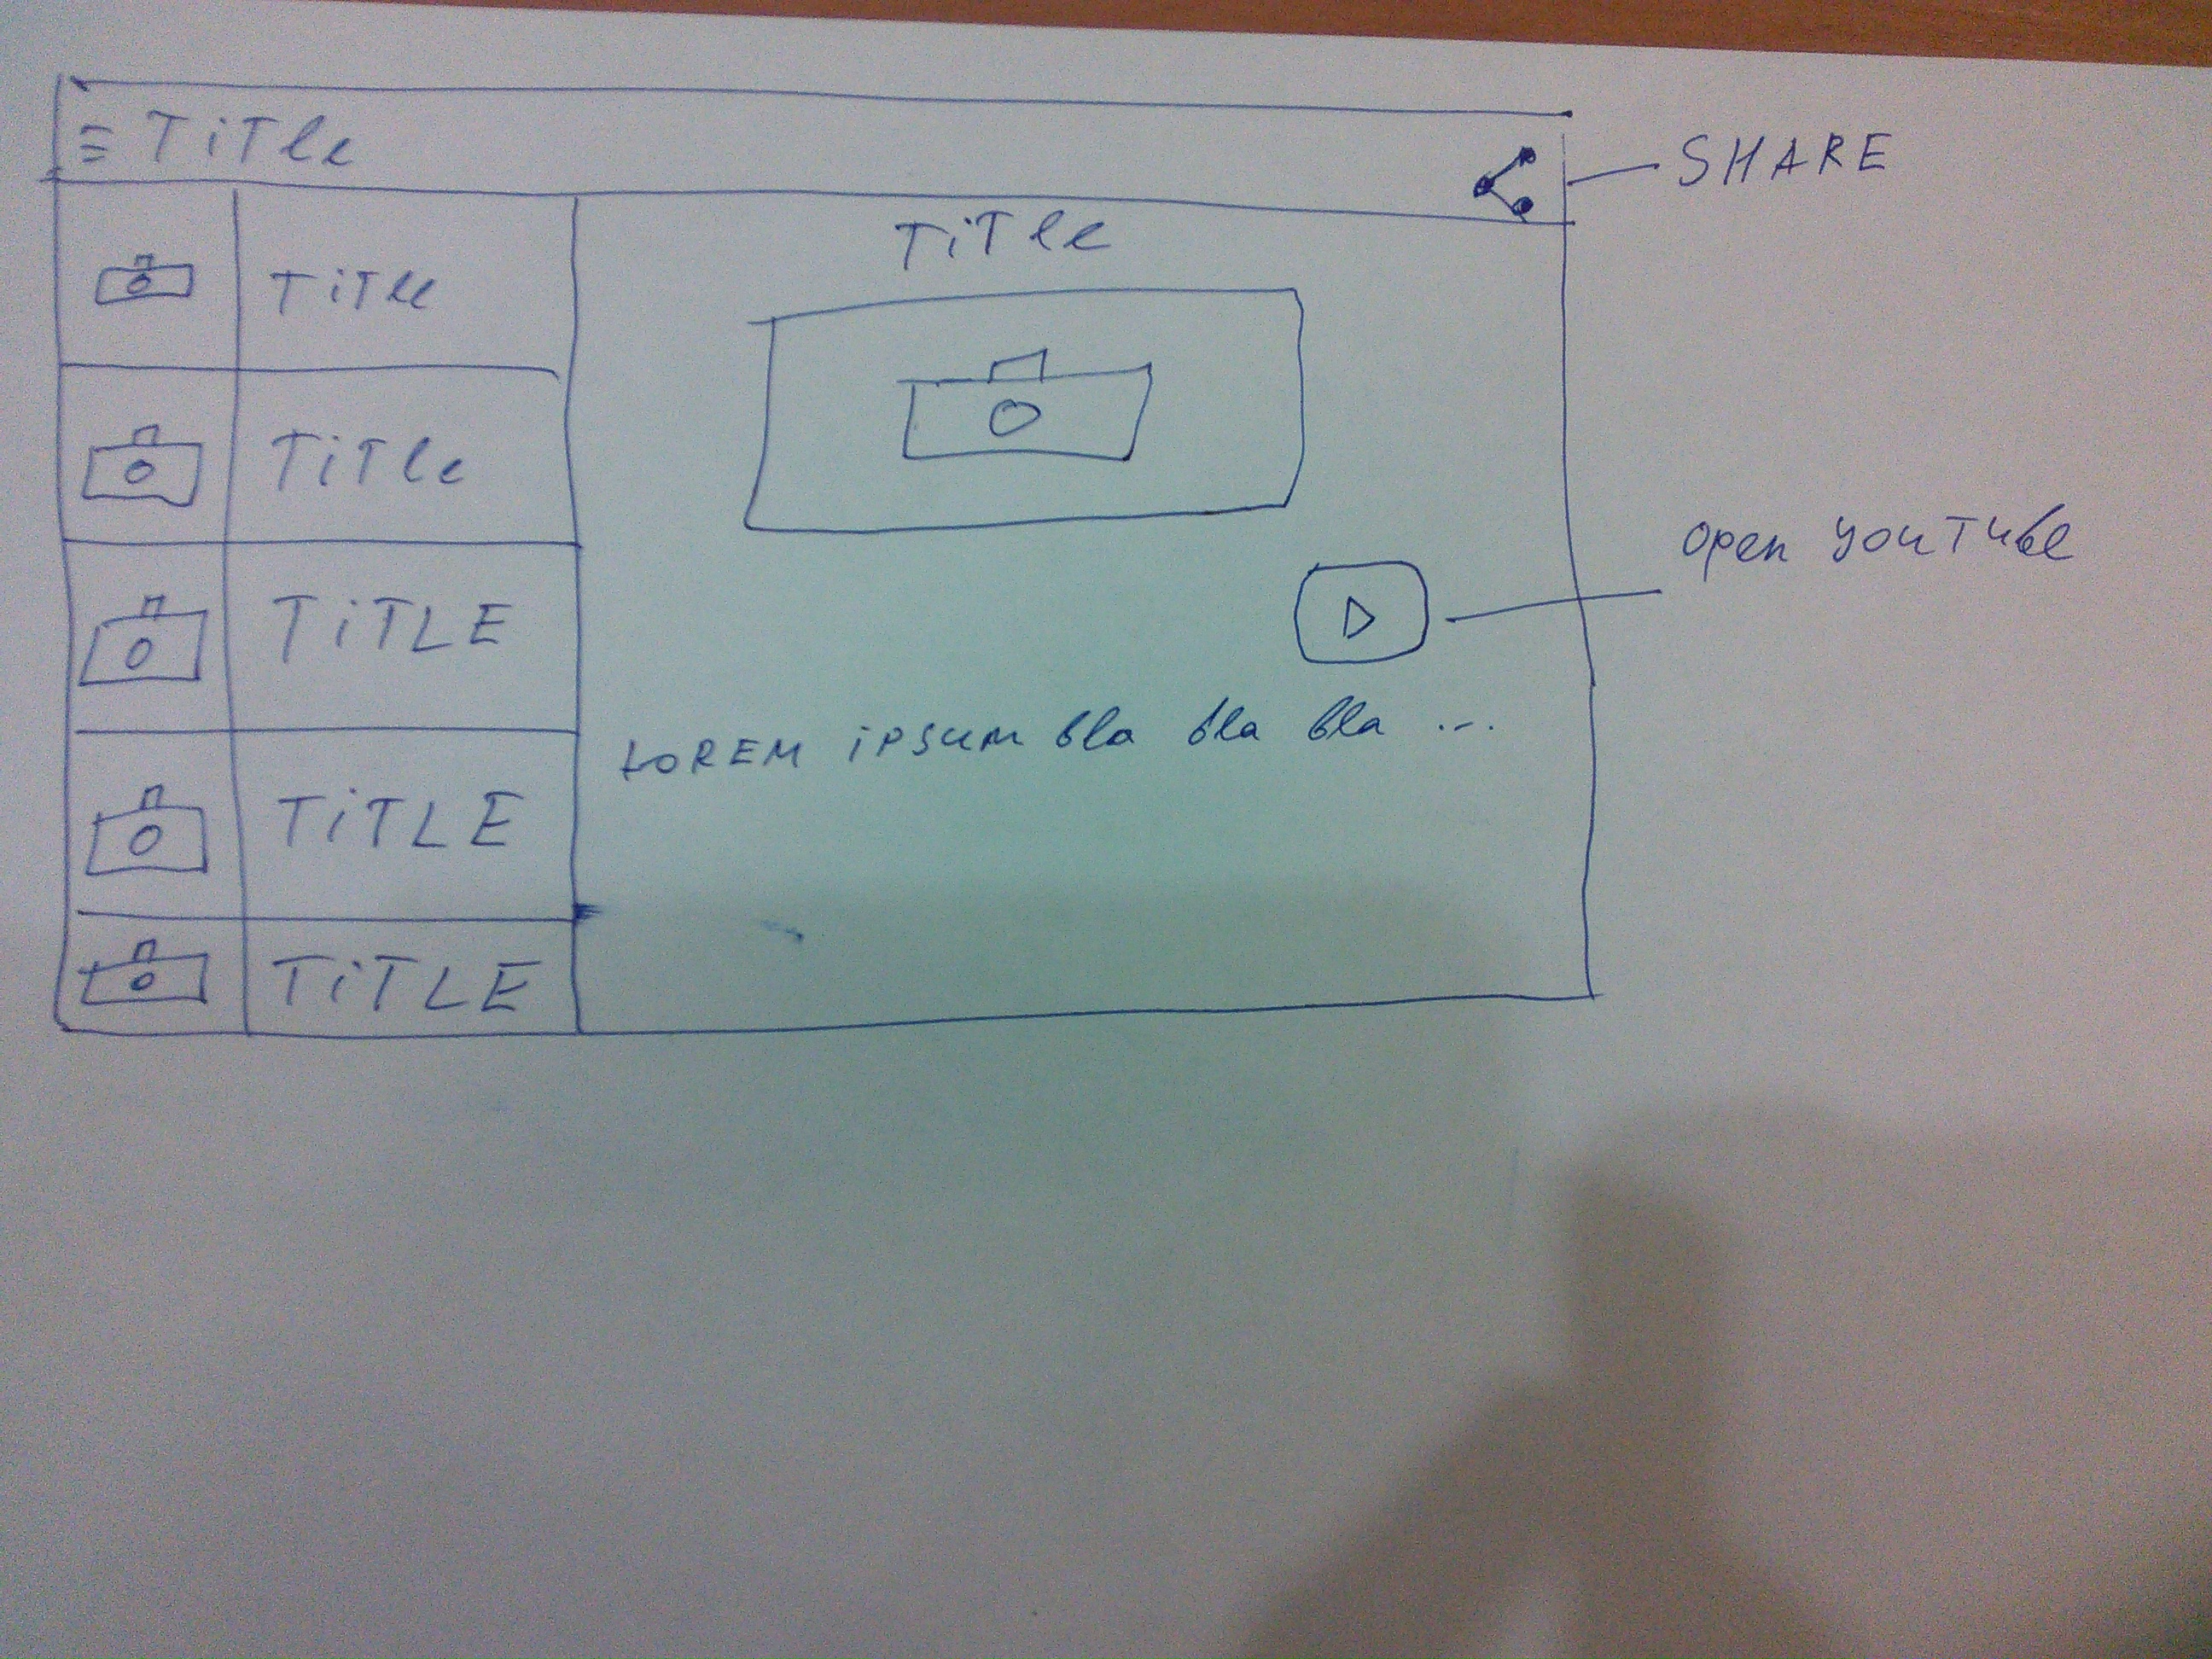 TiTle
SHARE
TiTle
TiTle
TiTle
TiTLE
TiTLE
TiTLE
open youTube
LOREM ipsum bla bla bla ...